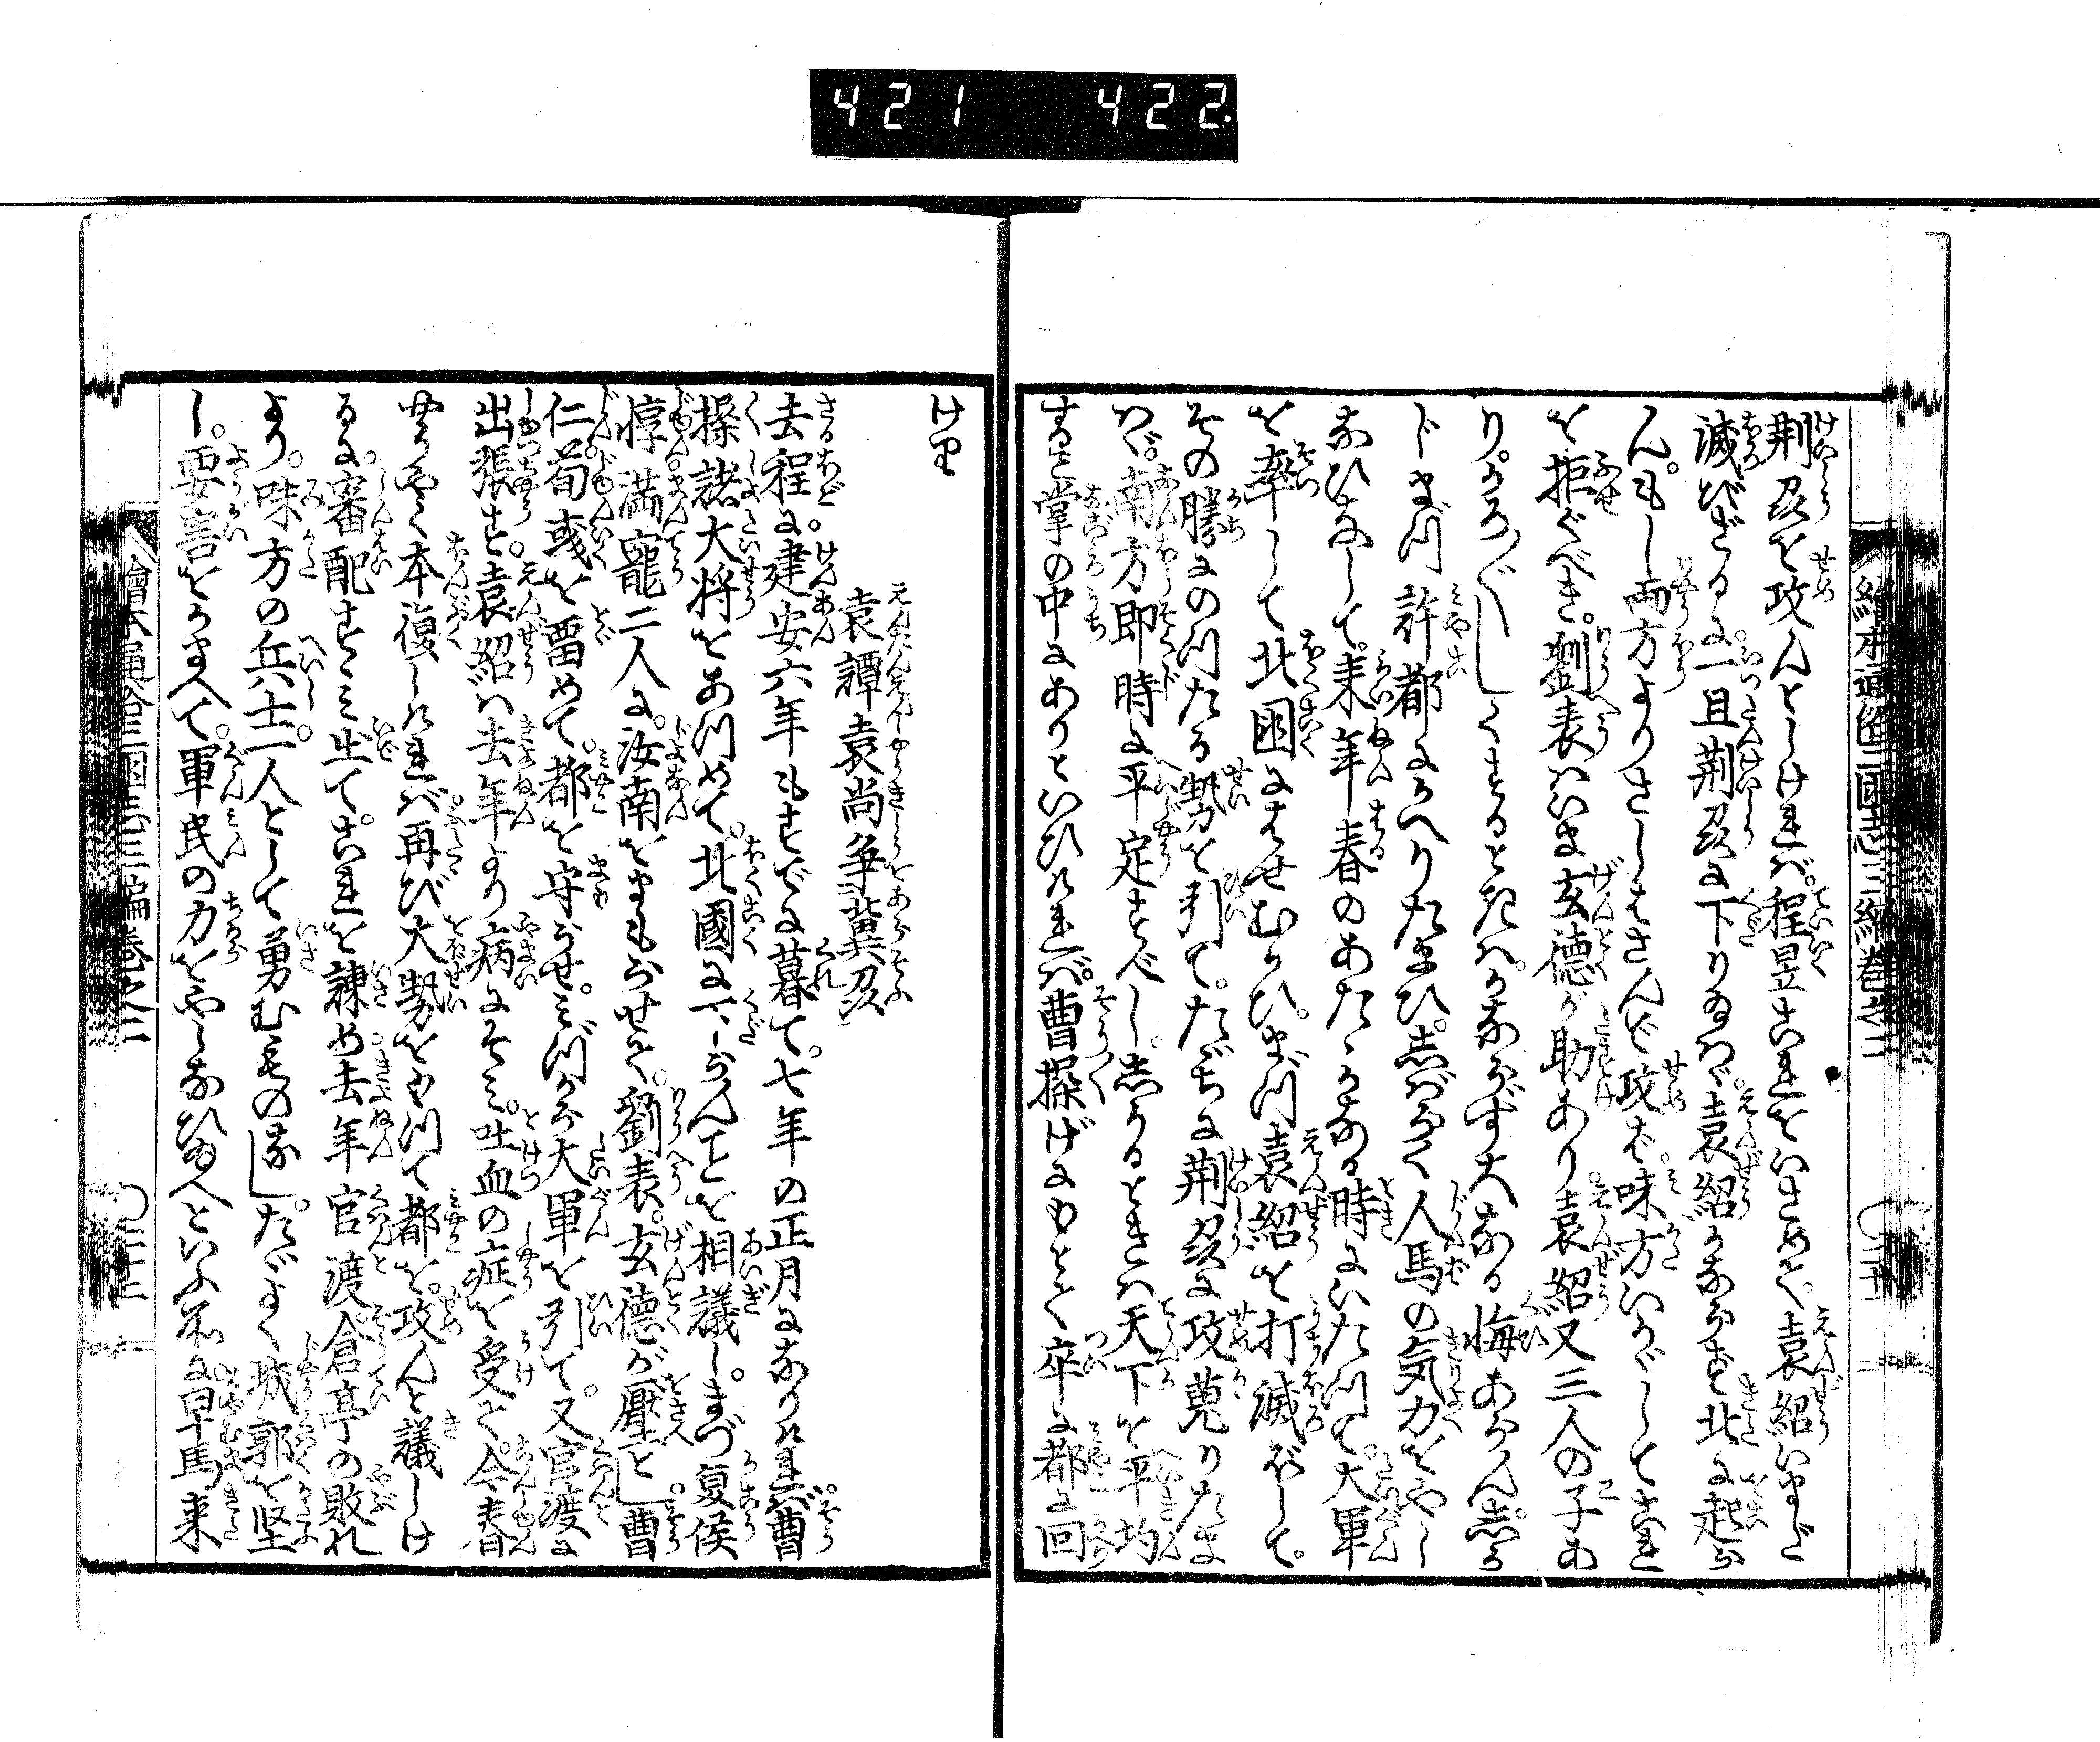 421 422
繪本通俗三国志三編巻之二
荆州を攻んとしければ。程昱これをいさめて。袁紹いまだ
滅びざるに。一旦荆州に下り給はゞ。袁紹かならず北に起ら
ん。もし両方よりさしはさんで攻ば。味方いかゞしてこれ
を拒ぐべき。劉表はいま玄徳が助あり。袁紹又三人の子あ
り。かろ〴〵しくするときは。かならず大なる悔あらん。しか
じまづ許都にかへりたまひ。しばらく人馬の気力をやし
なひなして。来年春のあたゝかなる時にいたつて。大軍
を率して北国にはせむかひ。まづ袁紹を打滅ぼして。
その勝にのつたる勢を引て。たゞちに荆州に攻蒐りたま
はゞ。南方即時に平定すべし。しかるときは天下を平均
すること掌の中にありといひければ。曹操げにもとて卒に都に回
けり
袁譚袁尚争冀州
去程に。建安六年もすでに暮て。七年の正月になりければ。曹
操諸大将をあつめて。北國に下らんことを相議し。まづ夏侯
惇満寵二人に。汝南をまもらせて。劉表。玄徳が壓とし。曹
仁荀彧を畱めて。都を守らせ。みづから大軍を引て。又官渡に
出張す。袁紹は去年より病にそみ。吐血の症を受て。今春
やうやく本復しければ。再び大勢をもつて都を。攻んと議しけ
るに。審配すゝみ出て。これを諫め。去年官渡。倉亭の敗れ
より。味方の兵士。一人として勇むものなし。たゞよく城郭を堅
し。要害をかまへて。軍民の力をやしなひ給へといふ所に。早馬来
繪本通俗三国志三編巻之二